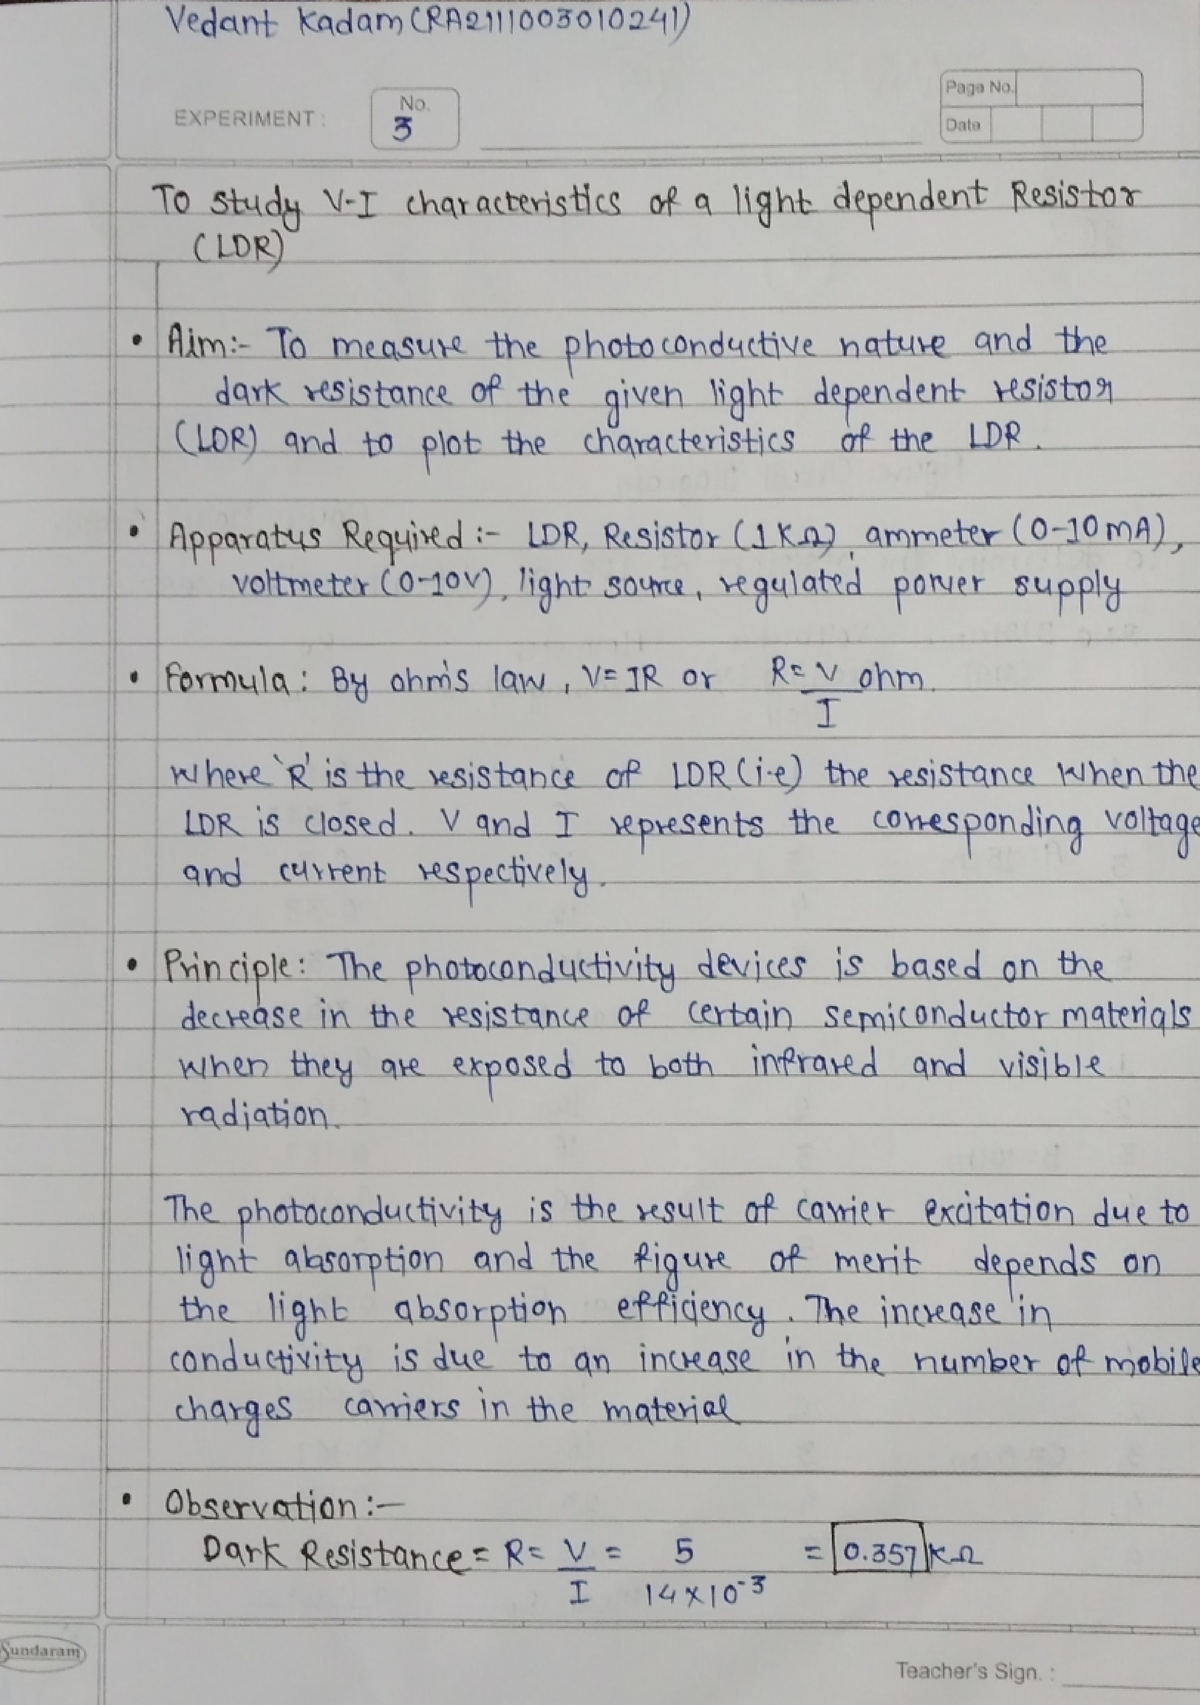 Vedant Kadam (RA2111003010241)
Page No.
No.
EXPERIMENT :
3
Date
To study V-I characteristics of a light dependent Resistor
(LDR)
• Aim:- To measure the photoconductive nature and the
dark resistance of the given light dependent resistor
(LDR) and to plot the characteristics of the LDR.
• Apparatus Required :- LDR, Resistor (1KΩ), ammeter (0-10mA),
voltmeter (0-10V), light source, regulated power supply
• Formula: By ohm's law, V=IR or R= V/I ohm.
where 'R' is the resistance of LDR (i.e) the resistance when the
LDR is closed. V and I represents the corresponding voltage
and current respectively.
• Principle: The photoconductivity devices is based on the
decrease in the resistance of certain semiconductor materials
when they are exposed to both infrared and visible
radiation.
The photoconductivity is the result of carrier excitation due to
light absorption and the figure of merit depends on
the light absorption efficiency. The increase in
conductivity is due to an increase in the number of mobile
charges carriers in the material
• Observation :-
Dark Resistance = R= V/I = 5/14×10⁻³ = 0.357 KΩ
Sundaram
Teacher's Sign. :